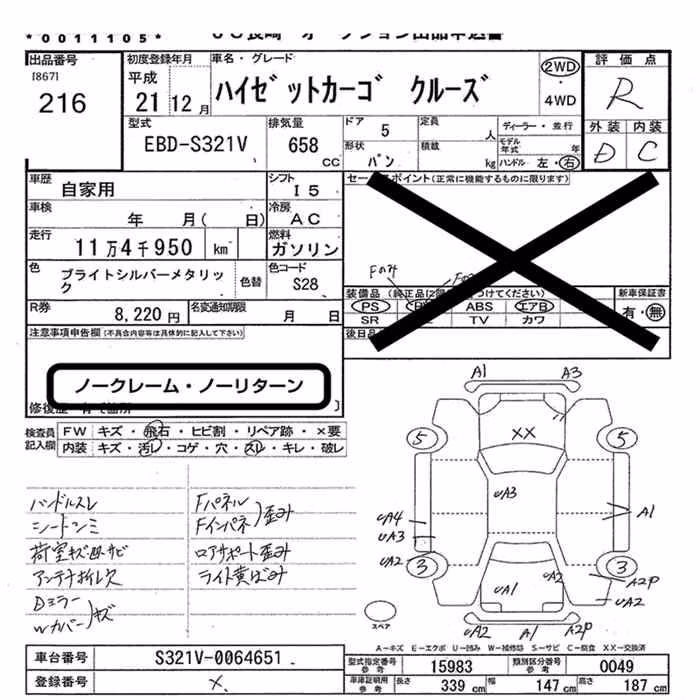 *0011105*
JU長崎 オークション出品申込書
出品番号
[867]
216
初度登録年月
平成
21 12月
車名・グレード
ハイゼットカーゴ クルーズ
2WD
・
4WD
評価点
R
外装 内装
D C
型式
EBD-S321V
排気量
658
CC
ドア
5
定員
人
ディーラー・並行
モデル年式 年
形状
バン
積載
kg
ハンドル 左・右
車歴
自家用
シフト
I5
車検
年 月( 日)
冷房
AC
走行
11万4千950 km
燃料
ガソリン
色
ブライトシルバーメタリック
色替
色コード
S28
R券
8,220円
名変通知期限
月 日
セールスポイント(正常に機能するものに限ります)
Fのみ
装備品 (純正品に限 つけてください)
PS ABS エアB
SR TV カワ
新車保証書
有・無
後日品
注意事項申告欄(不具合内容等は具体的に記入して下さい)
ノークレーム・ノーリターン
修復歴 有で箇所
検査員記入欄
FW キズ・飛石・ヒビ割・リペア跡・×要
内装 キズ・汚レ・コゲ・穴・スレ・キレ・破レ
ハンドルスレ
シートシミ
荷室キズ凹サビ
アンテナ折レ欠
Dミラー
Wカバー キズ
Fパネル
Fインパネ 歪み
ロアサポート歪み
ライト黄ばみ
A1 A3
5 5
XX
UA3
UA4
UA3
UA2
A1
3 3
UA1
UA2
A2P
UA2
UA2 A1 A2P
スペア
A−キズ E−エクボ U−凹み W−補修跡 S−サビ C−腐食 XX−交換済
車台番号
S321V-0064651
登録番号
×
型式指定番号
参考
15983
類別区分番号
参考
0049
車庫証明用
参考
長さ 339cm 幅 147cm 高さ 187cm